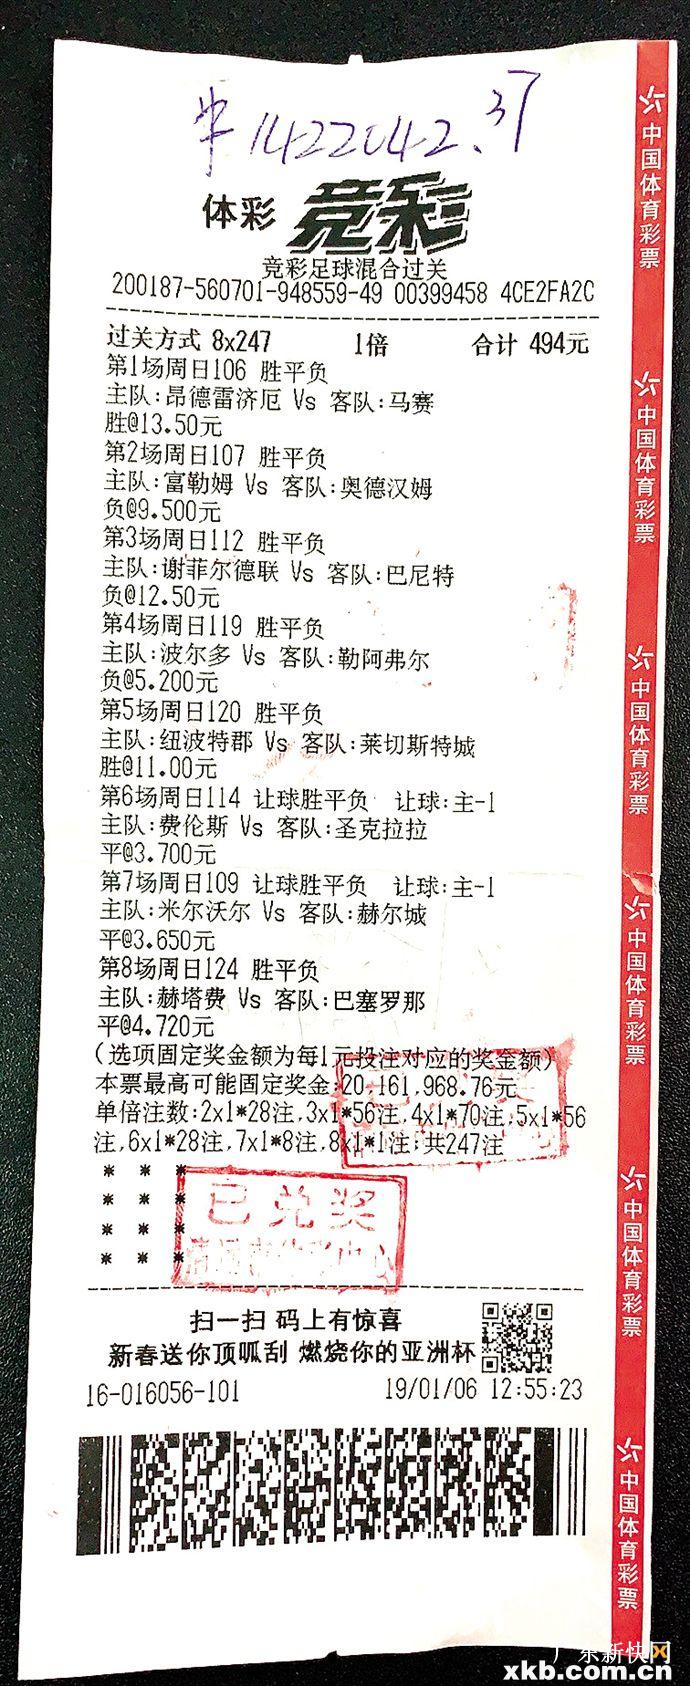 中1422042.37
体彩 竞彩
竞彩足球混合过关
200187-560701-948559-49 00399458 4CE2FA2C
过关方式 8x247 1倍 合计 494元
第1场周日106 胜平负
主队:昂德雷济厄 Vs 客队:马赛
胜@13.50元
第2场周日107 胜平负
主队:富勒姆 Vs 客队:奥德汉姆
负@9.500元
第3场周日112 胜平负
主队:谢菲尔德联 Vs 客队:巴尼特
负@12.50元
第4场周日119 胜平负
主队:波尔多 Vs 客队:勒阿弗尔
负@5.200元
第5场周日120 胜平负
主队:纽波特郡 Vs 客队:莱切斯特城
胜@11.00元
第6场周日114 让球胜平负 让球:主-1
主队:费伦斯 Vs 客队:圣克拉拉
平@3.700元
第7场周日109 让球胜平负 让球:主-1
主队:米尔沃尔 Vs 客队:赫尔城
平@3.650元
第8场周日124 胜平负
主队:赫塔费 Vs 客队:巴塞罗那
平@4.720元
(选项固定奖金额为每1元投注对应的奖金额)
本票最高可能固定奖金:20,161,968.76元
单倍注数:2x1*28注,3x1*56注,4x1*70注,5x1*56
注,6x1*28注,7x1*8注,8x1*1注;共247注
* * *
* * *
* * *
* * *
已兑奖
扫一扫 码上有惊喜
新春送你顶呱刮 燃烧你的亚洲杯
16-016056-101 19/01/06 12:55:23
中国体育彩票
中国体育彩票
中国体育彩票
中国体育彩票
中国体育彩票
中国体育彩票
广东新快网
xkb.com.cn